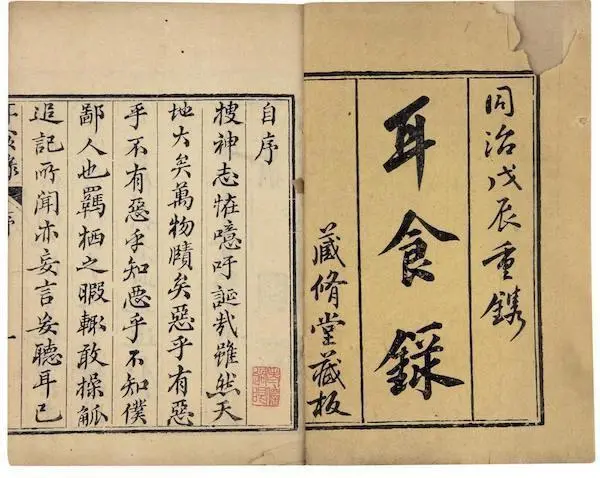 同治戊辰重鐫
耳食錄
藏脩堂藏板
自序
搜神志恠噫吁誕哉雖然天
地大矣萬物賾矣惡乎有惡
乎不有惡乎知惡乎不知僕
鄙人也羈栖之暇輙敢操觚
追記所聞亦妄言妄聽耳己
耳食錄 序 一